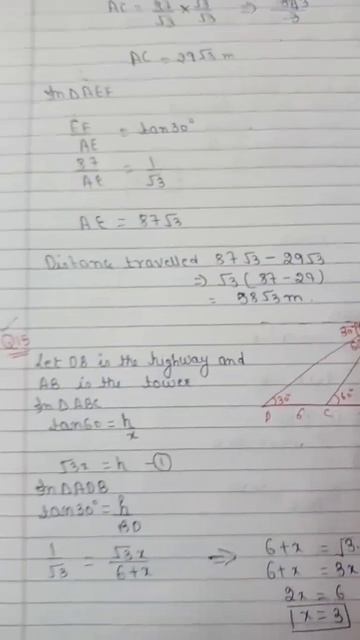 AC =
AC = 29√3 m
In ΔAEF
EF/AE = tan30°
87/AE = 1/√3
AE = 87√3
Distance travelled 87√3 - 29√3
⇒ √3 (87-29)
= 58√3 m
Q15
Let DB is the highway and
AB is the tower
In ΔABC
tan60 = h/x
√3x = h -①
In ΔADB
tan30° = h/BD
1/√3 = √3x/6+x ⇒ 6+x = √3.
6+x = 3x
2x = 6
x = 3
30°
30°
60°
D 6 C